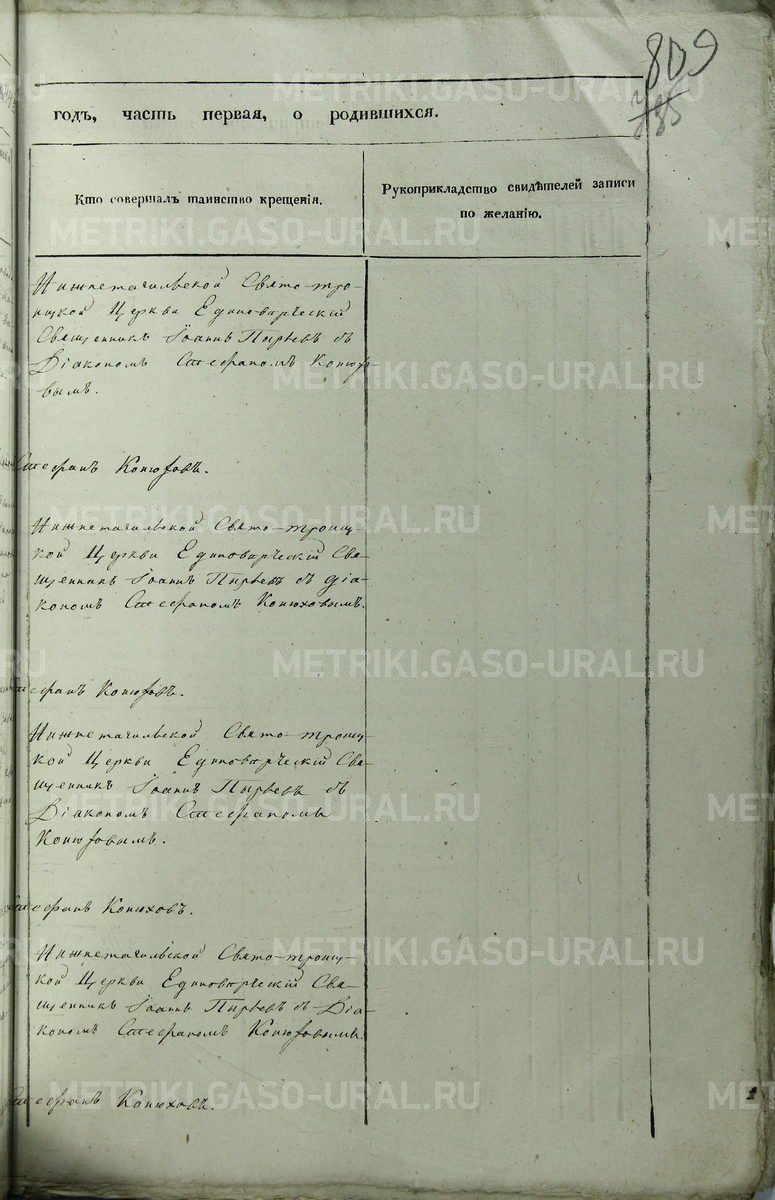 809
785
годъ, часть первая, о родившихся.
Кто совершалъ таинство крещенія.
Рукоприкладство свидѣтелей записи
по желанію.
Нижнетагильской Свято-тро-
ицкой Церкви Единоверческій
Священникъ Іоаннъ Пырьевъ съ
Діакономъ Стефаномъ Конюхо-
вымъ.
Стефанъ Конюховъ.
Нижнетагильской Свято-троиц-
кой Церкви Единоверческій Свя-
щенникъ Іоаннъ Пырьевъ съ діа-
кономъ Стефаномъ Конюховымъ.
Стефанъ Конюховъ.
Нижнетагильской Свято-троиц-
кой Церкви Единоверческій Свя-
щенникъ Іоаннъ Пырьевъ съ
Діакономъ Стефаномъ
Конюховымъ.
Стефанъ Конюховъ.
Нижнетагильской Свято-троиц-
кой Церкви Единоверческій Свя-
щенникъ Іоаннъ Пырьевъ съ Діа-
кономъ Стефаномъ Конюховымъ.
Стефанъ Конюховъ.
METRIKI.GASO-URAL.RU